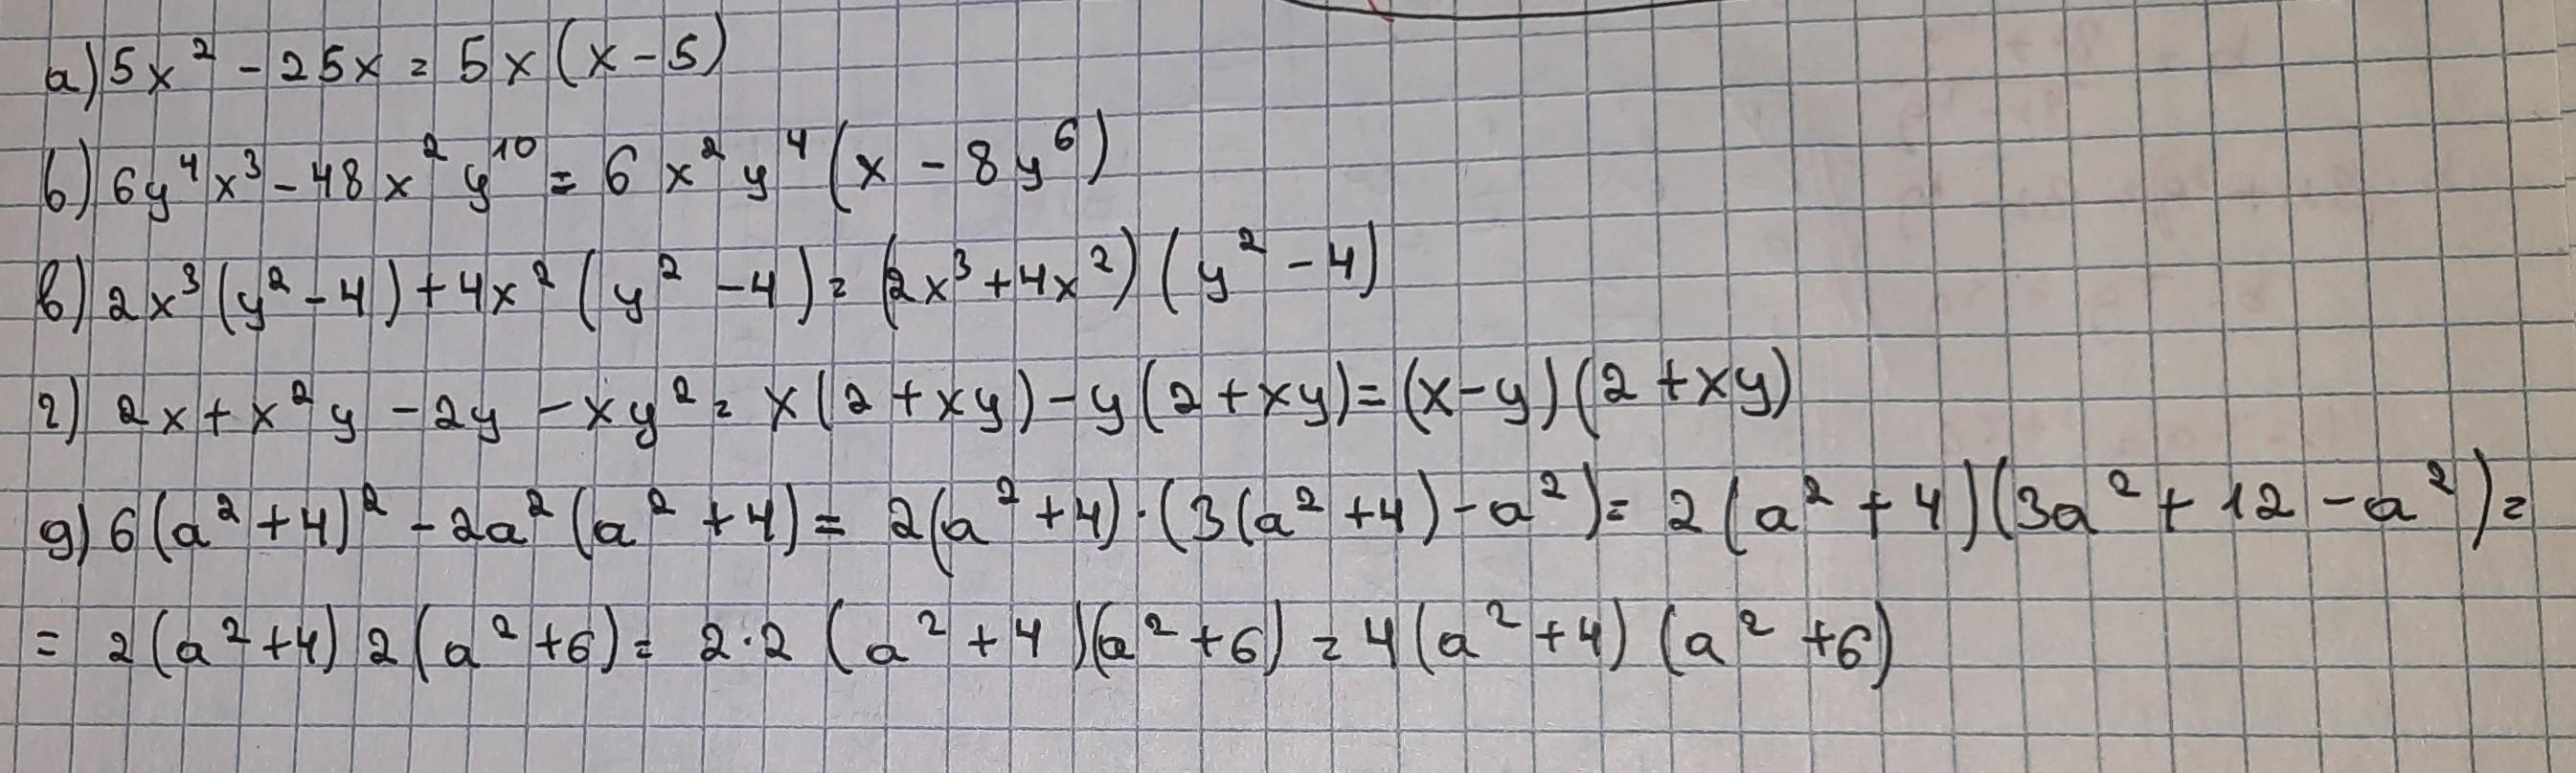 а) 5x² - 25x = 5x(x - 5)
б) 6y⁴x³ - 48x²y¹⁰ = 6x²y⁴(x - 8y⁶)
в) 2x³(y² - 4) + 4x²(y² - 4) = (2x³ + 4x²)(y² - 4)
г) 2x + x²y - 2y - xy² = x(2 + xy) - y(2 + xy) = (x - y)(2 + xy)
д) 6(a² + 4)² - 2a²(a² + 4) = 2(a² + 4)·(3(a² + 4) - a²) = 2(a² + 4)(3a² + 12 - a²) =
= 2(a² + 4) 2(a² + 6) = 2·2(a² + 4)(a² + 6) = 4(a² + 4)(a² + 6)